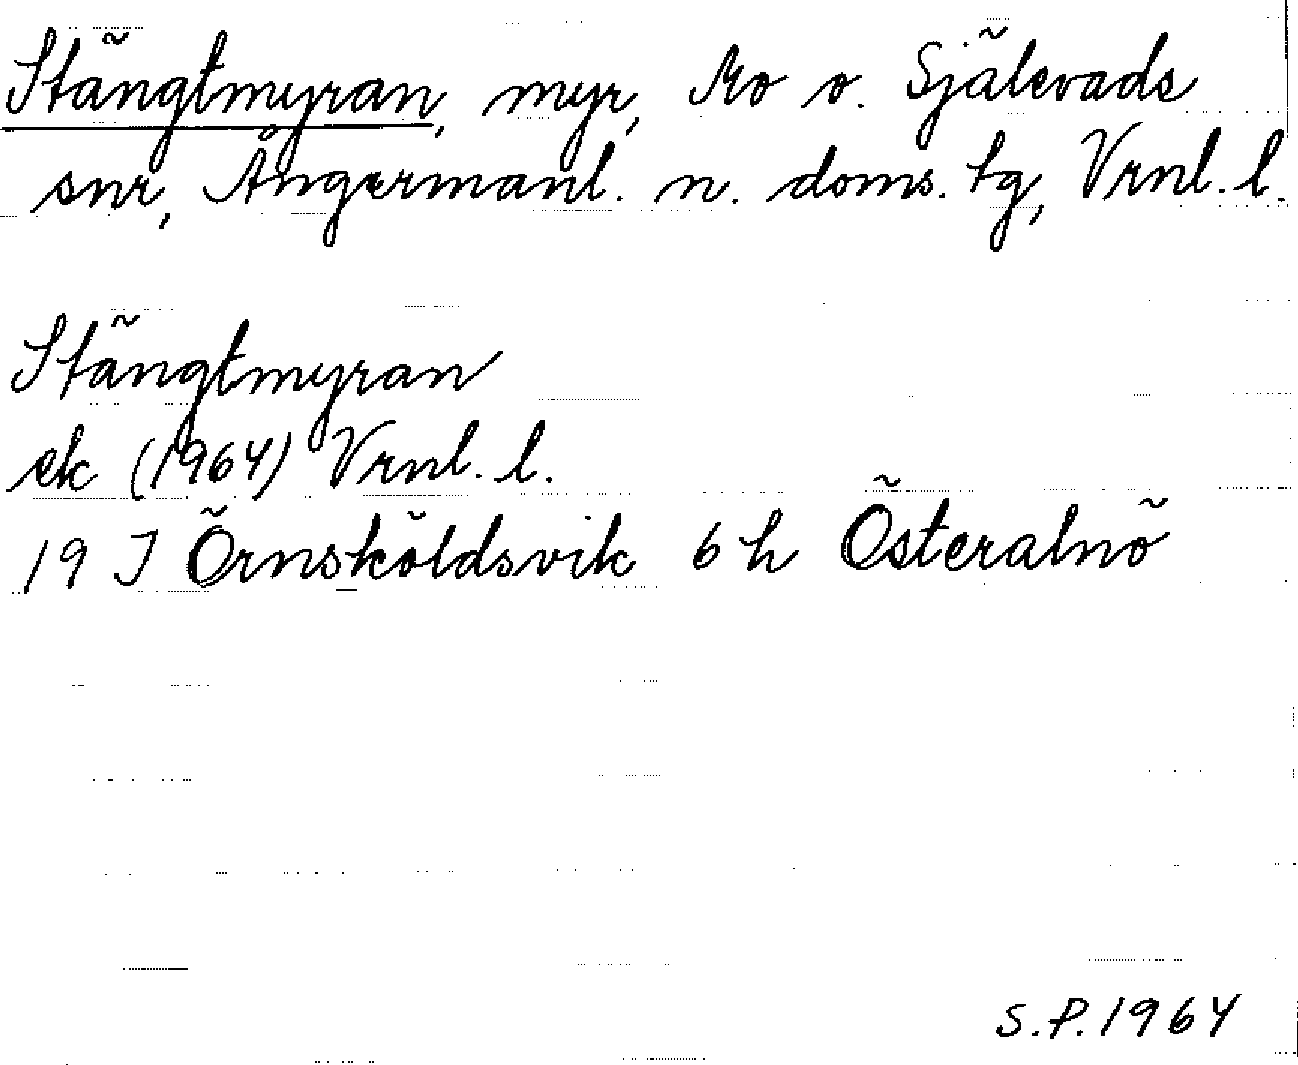 Stängtmyran, myr, Mo o. Själevads
snr, Ångermanl. n. doms. tg, Vrnl. l.
Stängtmyran
ek (1964) Vrnl. l.
19 J Örnsköldsvik 6 h Österalnö
S.P. 1964